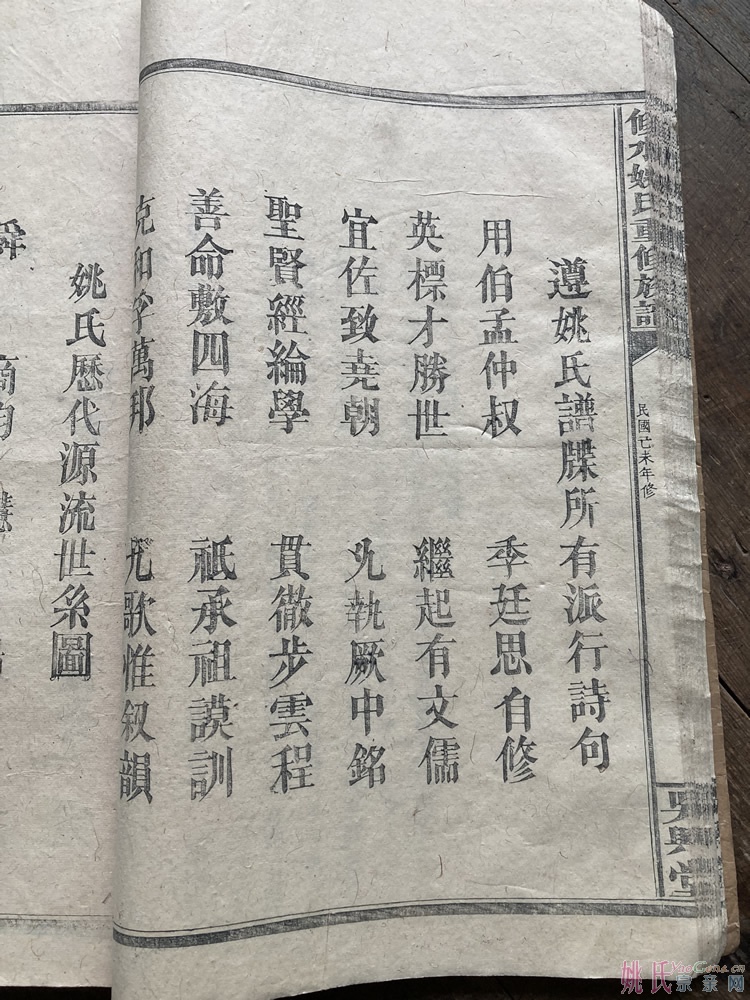 修水姚氏重修族譜
民國己未年修
吳興堂
遵姚氏譜牒所有派行詩句
用伯孟仲叔　季廷思自修
英標才勝世　繼起有文儒
宜佐致堯朝　允執厥中銘
聖賢經綸學　貫徹步雲程
善命敷四海　祗承祖謨訓
克和孚萬邦　九歌惟叙韻
姚氏歷代源流世系圖
舜
商均
姚氏宗亲网
YaoGens.cn